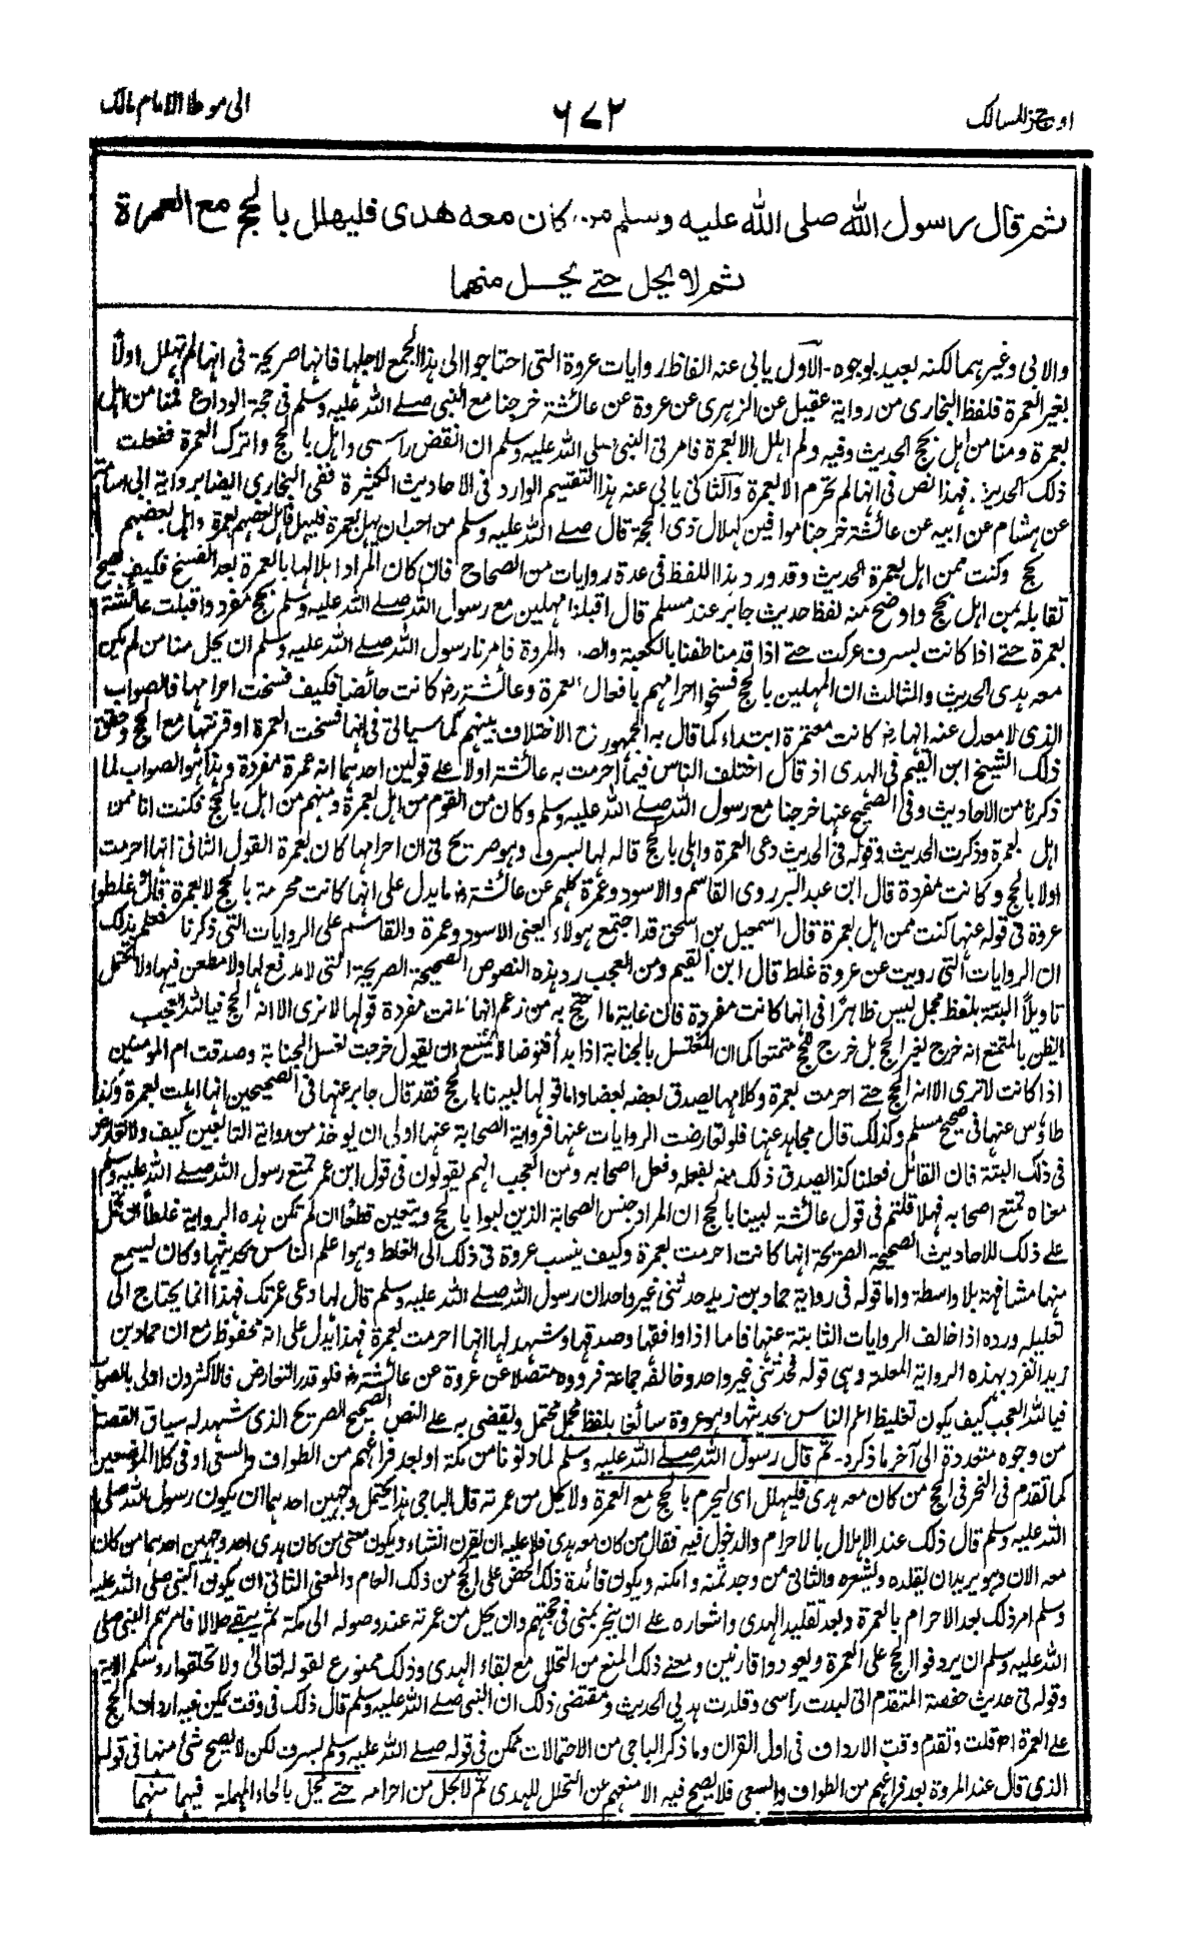 اوجز المسالك ٦٧٢ الى موطا الامام مالك
ثم قال رسول الله صلى الله عليه وسلم من كان معه هدى فليهلل بالحج مع العمرة
ثم لا يحل حتے يحل منهما
والابى وغيرهما لكنه بعيد لوجوه - الاول يابى عنه الفاظ روايات عروة التى احتاجوا الى هذا الجمع لاجلها فانها صريحة فى انها لم تهلل اولاً
بغير العمرة فلفظ البخارى من رواية عقيل عن الزهرى عن عروة عن عائشة خرجنا مع النبى صلے الله عليه وسلم فى حجة الوداع فمنا من اهل
بعمرة ومنا من اهل بحج الحديث وفيه ولم اهلل الا بعمرة فامرنى النبى صلى الله عليه وسلم ان انقض راسى واهل بالحج واترك العمرة ففعلت
ذلك الحديث . فهذا نص فى انها لم تحرم الا بعمرة والثانى يابى عنه هذا التقسيم الوارد فى الاحاديث الكثيرة ففى البخارى ايضا برواية ابى اسامة
عن هشام عن ابيه عن عائشة خرجنا موافين لهلال ذى الحجة قال صلے الله عليه وسلم من احب ان يهل بعمرة فليهل فاهل بعضهم بعمرة واهل بعضهم
بحج وكنت ممن اهل بعمرة الحديث وقد ورد بهذا اللفظ فى عدة روايات من الصحاح فان كان المراد اهلالها بالعمرة بعد الفسخ فكيف يصح
تقابله بمن اهل بحج واوضح منه لفظ حديث جابر عند مسلم قال اقبلنا مهلين مع رسول الله صلے الله عليه وسلم بحج مفرد واقبلت عائشة
بعمرة حتے اذا كانت بسرف عركت حتے اذا قدمنا طفنا بالكعبة والصفا والمروة فامرنا رسول الله صلے الله عليه وسلم ان يحل منا من لم يكن
معه هدى الحديث والثالث ان المهلين بالحج فسخوا احرامهم بافعال العمرة وعائشة رض كانت حائضا فكيف فسخت احرامها فالصواب
الذى لا معدل عنه انها رض كانت معتمرة ابتداء كما قال به الجمهور مع الاختلاف بينهم كما سياتى فى انها فسخت العمرة او قرنتها مع الحج وحقق
ذلك الشيخ ابن القيم فى الهدى اذ قال اختلف الناس فيما احرمت به عائشة اولا على قولين احدهما انه عمرة مفردة وهذا هو الصواب لما
ذكرنا من الاحاديث وفى الصحيح عنها خرجنا مع رسول الله صلے الله عليه وسلم وكان من القوم من اهل بعمرة ومنهم من اهل بالحج فكنت انا ممن
اهل بعمرة وذكرت الحديث وقوله فى الحديث دعى العمرة واهلى بالحج قاله لها بسرف وهو صريح فى ان احرامها كان بعمرة القول الثانى انها احرمت
اولا بالحج وكانت مفردة قال ابن عبد البر روى القاسم والاسود وعمرة كلهم عن عائشة رض ما يدل على انها كانت محرمة بالحج لا بعمرة قال وغلطوا
عروة فى قوله عنها كنت ممن اهل بعمرة قال اسمعيل بن اسحق قد اجتمع هولاء يعنى الاسود وعمرة والقاسم على الروايات التى ذكرنا فعلم بذلك
ان الروايات التى رويت عن عروة غلط قال ابن القيم ومن العجب رد هذه النصوص الصحيحة الصريحة التى لا مدفع لها ولا مطعن فيها ولا تحتمل
تاويلاً البتة بلفظ مجمل ليس ظاهراً فى انها كانت مفردة فان غاية ما احتج به من زعم انها كانت مفردة قولها لا نرى الا انه الحج فيالله العجب
ايظن بالمتمتع انه خرج لغير الحج بل خرج للحج متمتعا كما ان المغتسل بالجنابة اذا بدأ فتوضا لا يمتنع ان يقول خرجت لغسل الجنابة وصدقت ام المومنين
اذا كانت لا ترى الا انه الحج حتے احرمت بعمرة وكلامها يصدق بعضه بعضا واما قولها لبينا بالحج فقد قال جابر عنها فى الصحيحين انها اهلت بعمرة وكذا
طاؤس عنها فى صحيح مسلم وكذلك قال مجاهد عنها فلو تعارضت الروايات عنها فرواية الصحابة عنها اولى ان يوخذ من رواية التابعين كيف ولا تعارض
فى ذلك البتة فان القائل فعلنا كذا يصدق ذلك منه بفعله وفعل اصحابه ومن العجب انهم يقولون فى قول ابن عمر تمتع رسول الله صلے الله عليه وسلم
معناه تمتع اصحابه فهلا قلتم فى قول عائشة لبينا بالحج ان المراد جنس الصحابة الذين لبوا بالحج ويتعين قطعًا ان لم تكن هذه الرواية غلطاً ان تحمل
على ذلك للاحاديث الصحيحة الصريحة انها كانت احرمت بعمرة وكيف ينسب عروة فى ذلك الى الغلط وهو اعلم الناس بحديثها وكان يسمع
منها مشافهة بلا واسطة واما قوله فى رواية حماد بن زيد حدثنى غير واحد ان رسول الله صلے الله عليه وسلم قال لها دعى عمرتك فهذا انما يحتاج الى
تعليله ورده اذا خالف الروايات الثابتة عنها فاما اذا وافقها وصدقها وشهد لها انها احرمت بعمرة فهذا يدل على انه محفوظ مع ان حماد بن
زيد انفرد بهذه الرواية المعللة وهى قوله فحدثنى غير واحد وخالفه جماعة فرووه متصلا عن عروة عن عائشة رض فلو قدر التعارض فالاكثرون اولى بالصواب
فيالله العجب كيف يكون تغليط اعلم الناس بحديثها وهو عروة سائغا بلفظ مجمل محتمل ويقضى به على النص الصحيح الصريح الذى شهد له سياق القصة
من وجوه متعددة الى آخر ما ذكره - ثم قال رسول الله صلے الله عليه وسلم لما دنونا من مكة او بعد فراغهم من الطواف والسعى او فى كلا الموضعين
كما تقدم فى النحر فى الحج من كان معه هدى فليهلل اى ليحرم بالحج مع العمرة ولا يحل من عمرته قال الباجى هذا يحتمل وجهين احدهما ان يكون رسول الله صلى
الله عليه وسلم قال ذلك عند الاهلال بالاحرام والدخول فيه فقال من كان معه هدى فلا عليه ان يقرن انشاء ويكون معنى من كان هدى احد وجهين احدهما من كان
معه الان وهو يريد ان يقلده ويشعره والثانى من وجد ثمنه وامكنه ويكون فائدة ذلك الحض على الحج من ذلك العام والمعنى الثانى ان يكون النبى صلى الله عليه
وسلم امر ذلك بعد الاحرام بالعمرة وبعد تقليد الهدى واشعاره على ان ينحر بمنى فى حجتهم وان يحل من عمرته عند وصوله الى مكة ثم يبقے حلالا فامرهم النبى صلى
الله عليه وسلم ان يردفوا الحج على العمرة ويعودوا قارنين ومعنے ذلك المنع من التحلل مع بقاء الهدى وذلك ممنوع لقوله تعالى ولا تحلقوا روسكم الاية
وقوله فى حديث حفصة المتقدم انى لبدت رأسى وقلدت هديى الحديث ومقتضى ذلك ان النبى صلے الله عليه وسلم قال ذلك فى وقت يمكن فيه ارداف الحج
على العمرة اھ قلت وتقدم وقت الارداف فى اول القران وما ذكر الباجى من الاحتمالات ممكن فى قوله صلے الله عليه وسلم بسرف لكن لا يصح شئ منها فى قوله
الذى قال عند المروة بعد فراغهم من الطواف والسعى فلا يصح فيه الا منعهم عن التحلل للهدى ثم لا يحل من احرامه حتے يحل بالحاء المهملة فيهما منهما